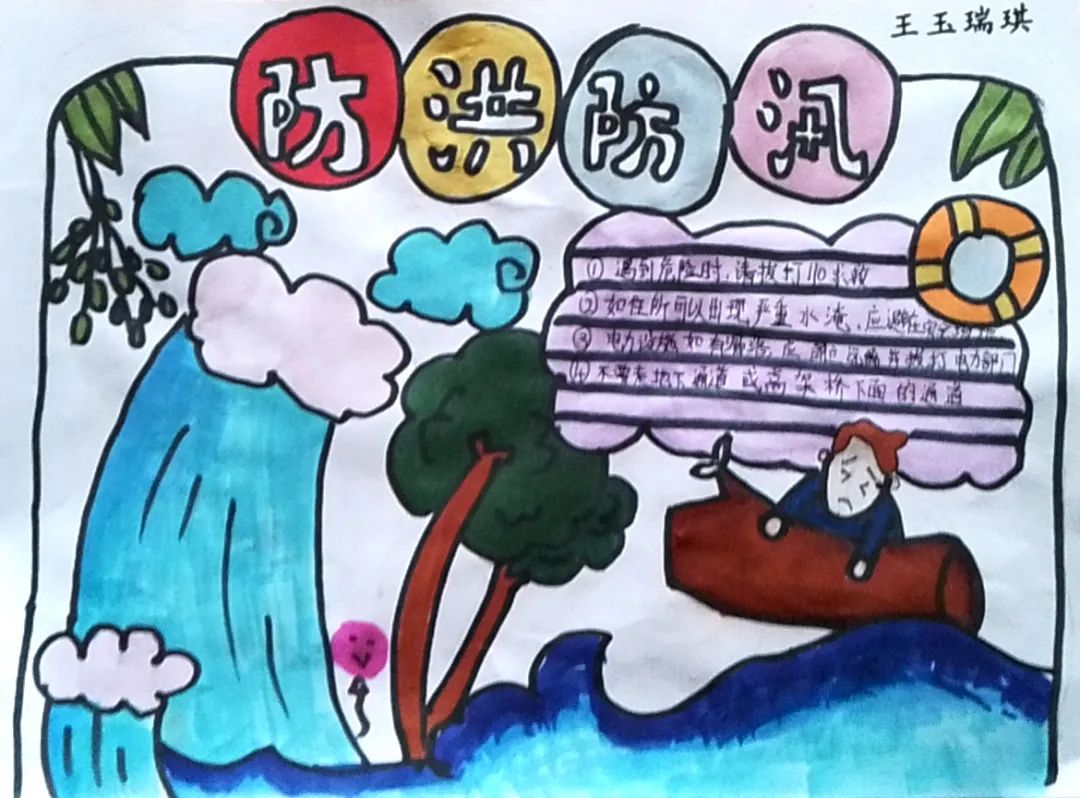 王玉瑞琪
防洪防汛
① 遇到危险时,请拨打110求救
② 如住所可以出现严重水淹,应避在安全
③ 电力设施如有 应 拨打电力部门
④ 不要去地下通道或高架桥下面的通道